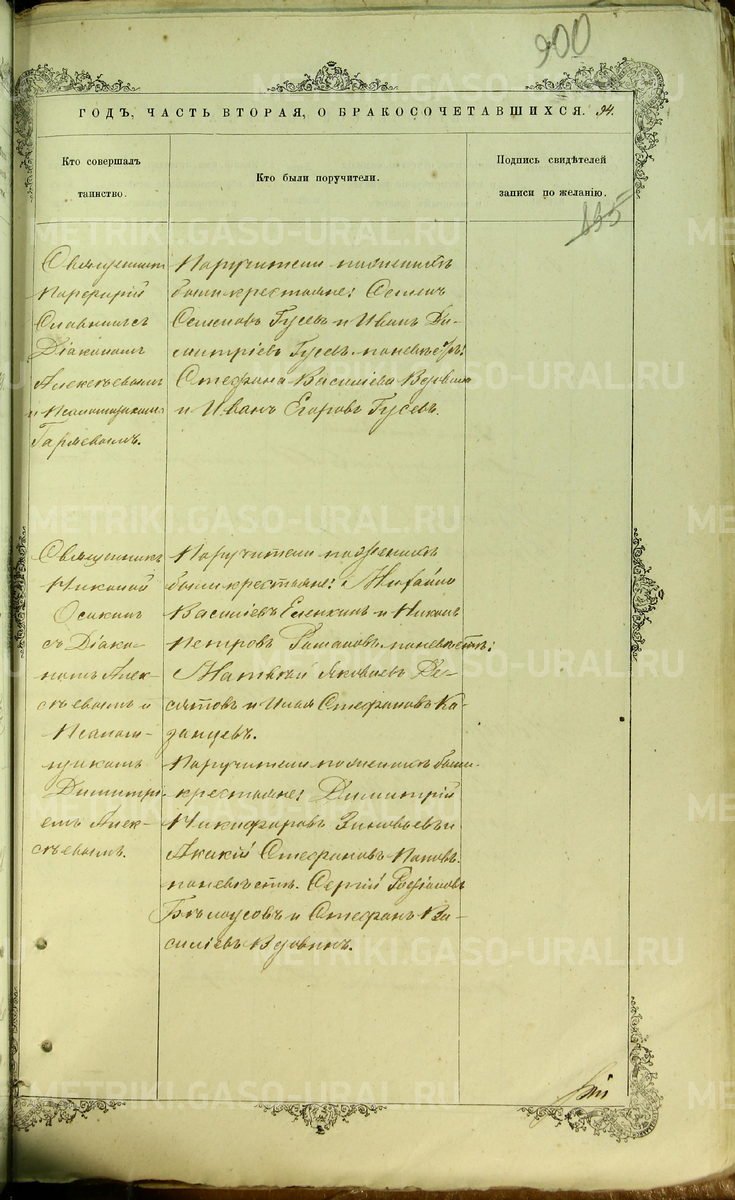 900
ГОДЪ, ЧАСТЬ ВТОРАЯ, О БРАКОСОЧЕТАВШИХСЯ. 94.
Кто совершалъ
таинство.
Кто были поручители.
Подпись свидѣтелей
записи по желанію.
Священникъ
Порфирій
Славнинъ с
Діакономъ
Алексѣевымъ
и Псаломщикомъ
Гаряевымъ.
Поручители по женихѣ
были крестьяне:
Семеновъ Гусевъ и Иванъ Ди-
митріевъ Гусевъ. по невѣстѣ:
Стефанъ Василіевъ Вдовинъ
и Иванъ Егоровъ Гусевъ.
Священникъ
Николай
Осикомъ
съ Діако-
номъ Алек-
сѣевымъ и
Псалом-
щикомъ
Димитрі-
емъ Алек-
сѣевымъ.
Поручители по женихѣ
были крестьяне: Михайло
Василіевъ Еленкинъ и Никонъ
Петровъ Романовъ. по невѣстѣ:
Матвѣй Яковлевъ Де-
сятовъ и Илья Стефановъ Ка-
занцевъ.
Поручители по женихѣ были
крестьяне: Димитрій
Никифоровъ Зиновьевъ и
Акакій Стефановъ Поповъ.
по невѣстѣ. Сергій Родіоновъ
Бѣлоусовъ и Стефанъ Ва-
силіевъ Вдовинъ.
METRIKI.GASO-URAL.RU